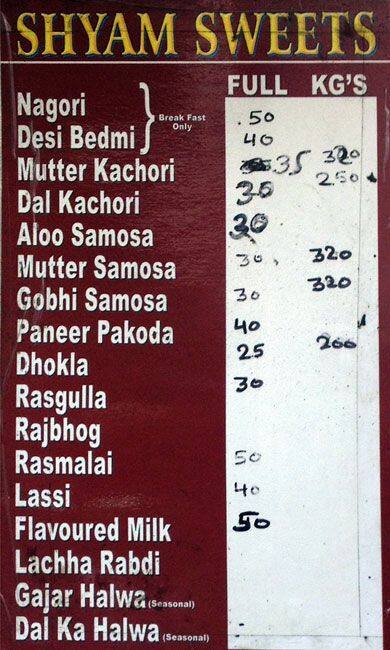 SHYAM SWEETS
FULL KG'S
Nagori .50
Break Fast
Only
Desi Bedmi 40
Mutter Kachori 35 320
Dal Kachori 30 250
Aloo Samosa 30
Mutter Samosa 30 320
Gobhi Samosa 30 320
Paneer Pakoda 40
Dhokla 25 200
Rasgulla 30
Rajbhog
Rasmalai 50
Lassi 40
Flavoured Milk 50
Lachha Rabdi
Gajar Halwa (Seasonal)
Dal Ka Halwa (Seasonal)